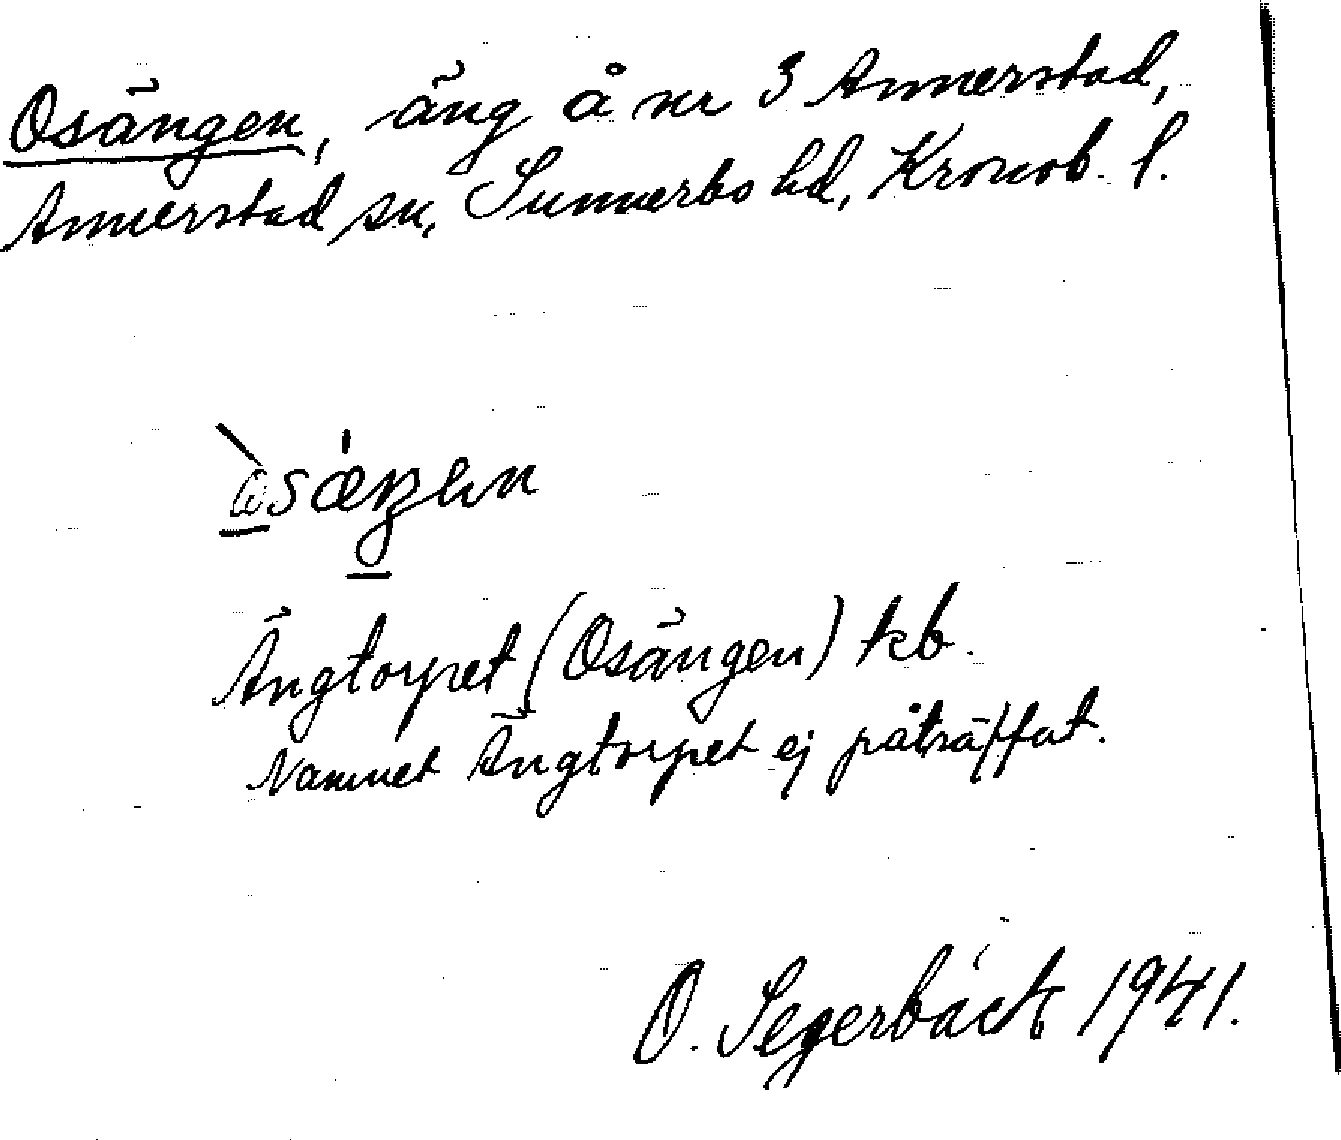 Osängen, äng å nr 3 Annerstad,
Annerstad sn, Sunnerbo hd, Kronob. l.
Ängtorpet (Osängen) kb.
Namnet Ängtorpet ej påträffat.
O. Segerbäck 1941.